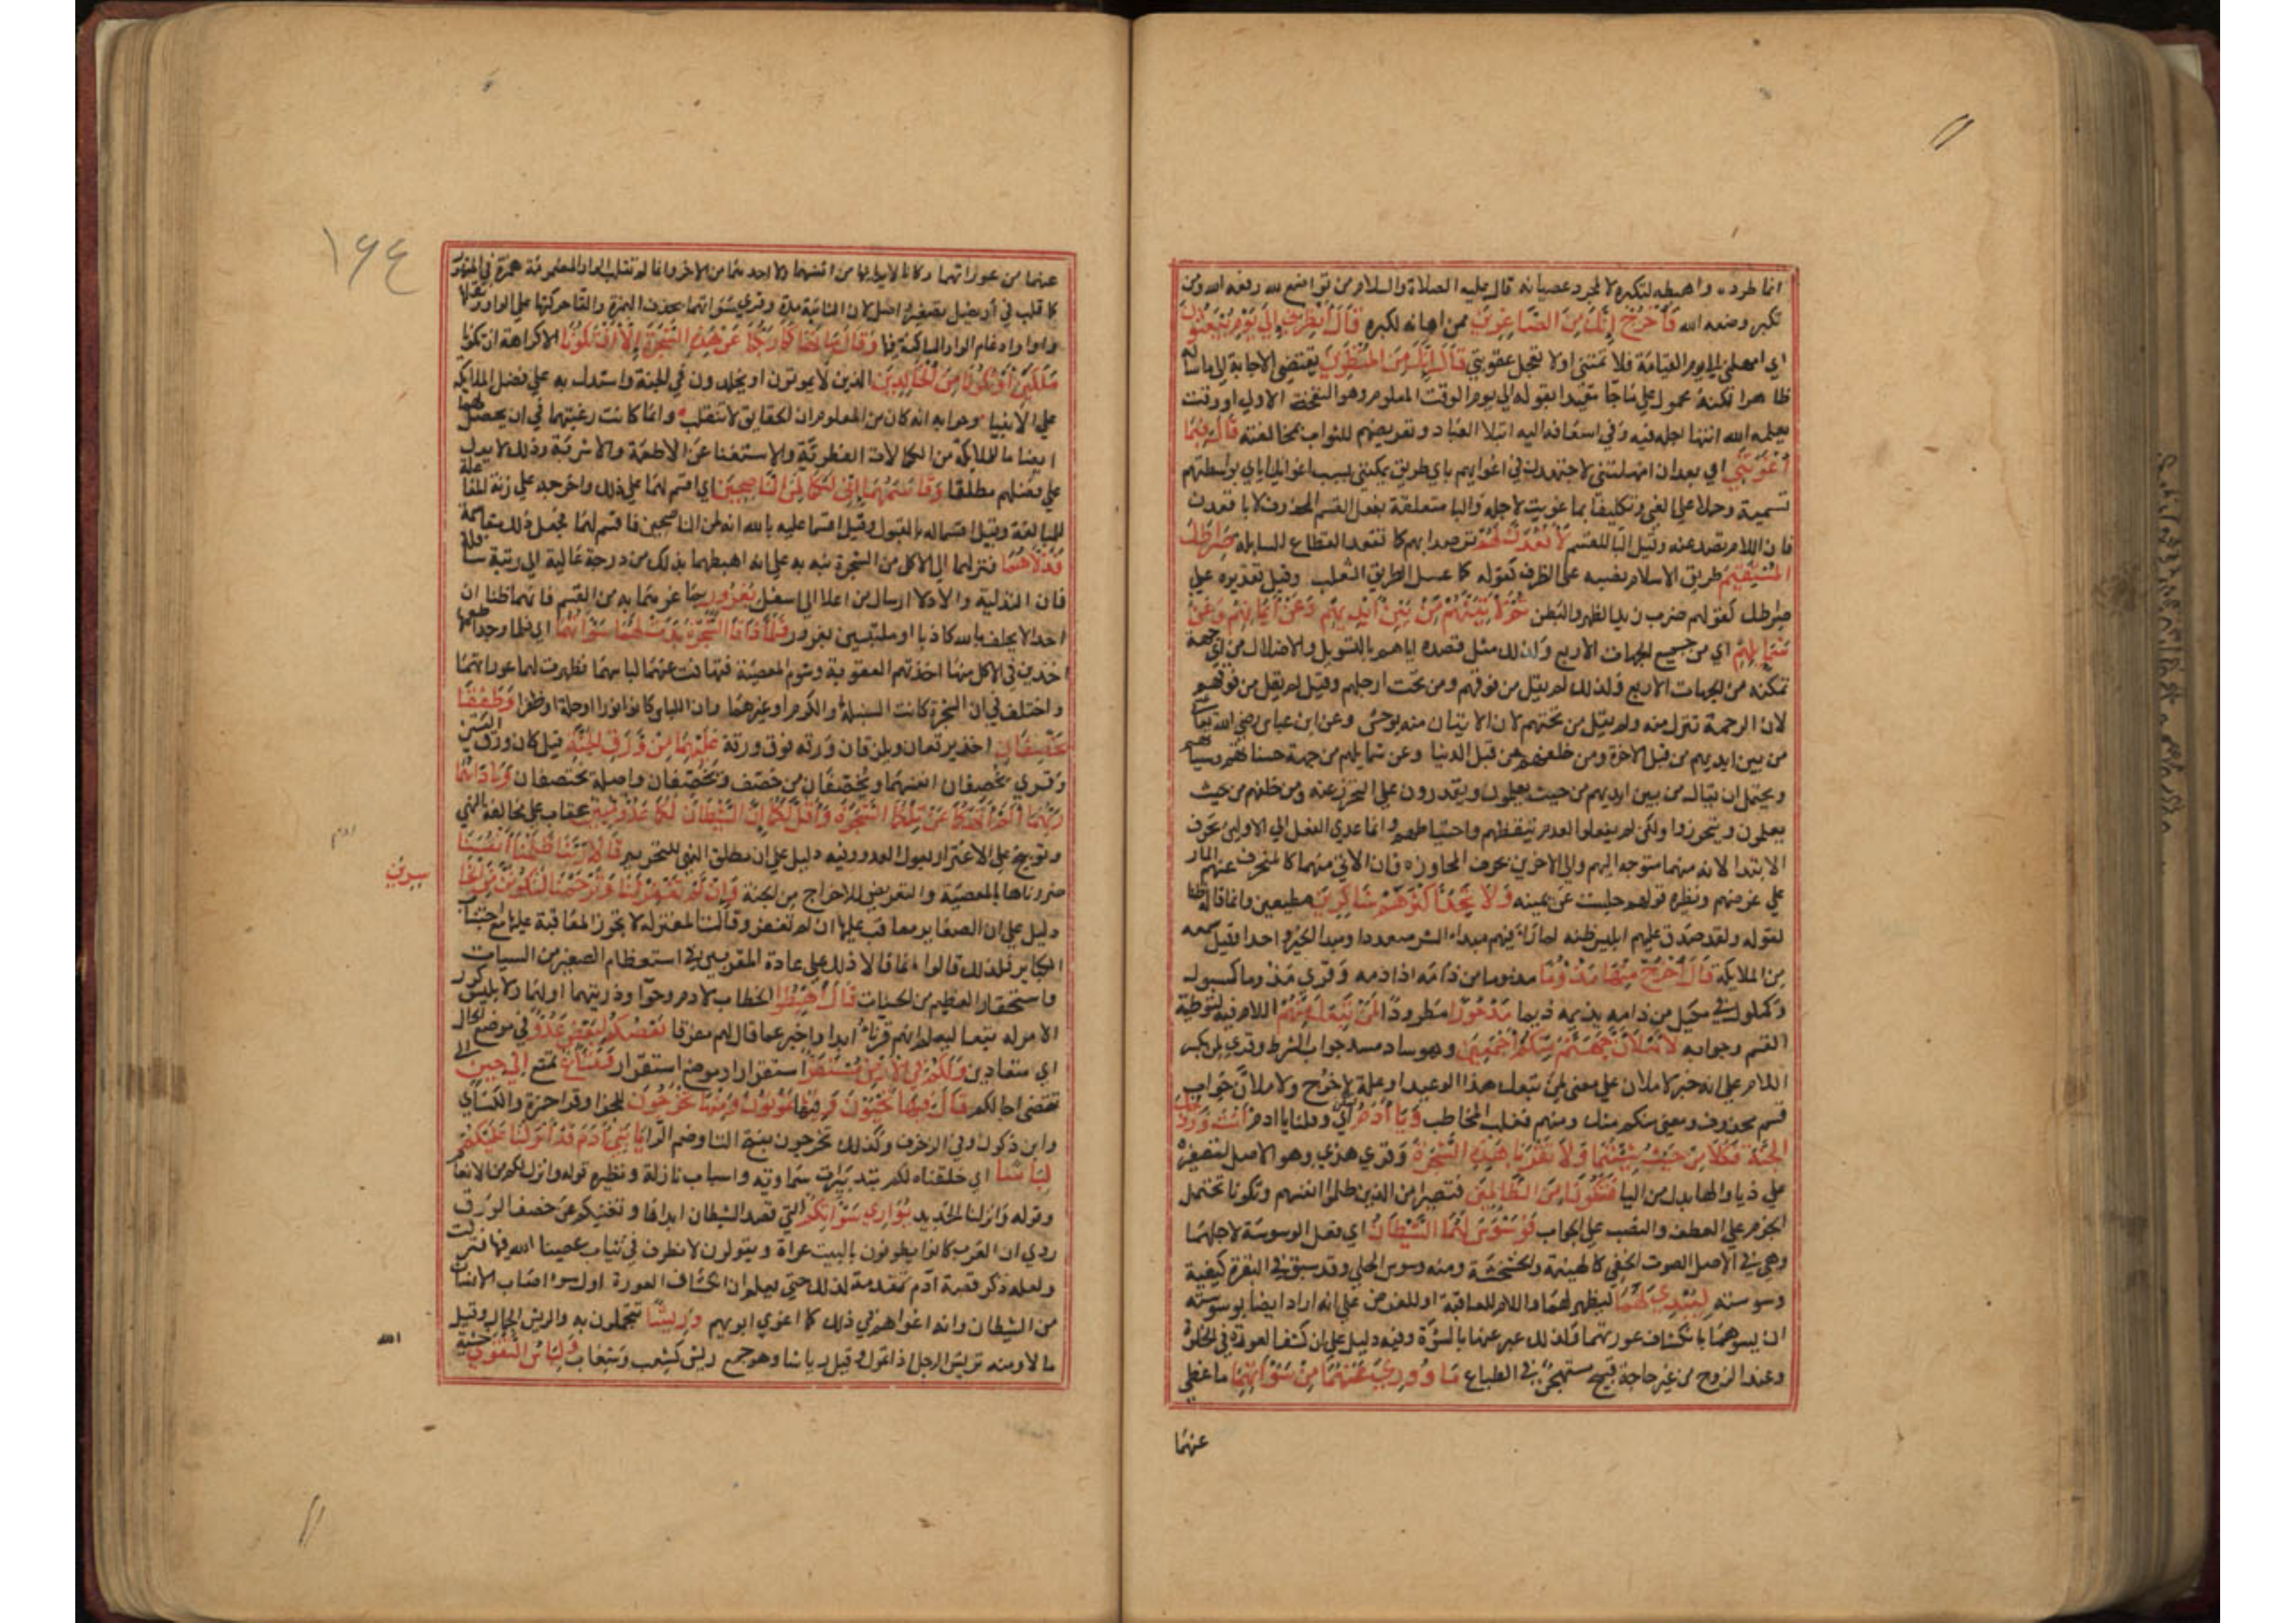 انما طرده واهبطه لتكبره لا لمجرد عصيانه قال عليه الصلاة والسلام من تواضع لله رفعه الله ومن
تكبر وضعه الله فَاخْرُجْ إِنَّكَ مِنَ الصَّاغِرِينَ ممن اهانه لكبره قَالَ أَنْظِرْنِي إِلَى يَوْمِ يُبْعَثُونَ
اي امهلني الي يوم القيامة فلا تمتني او لا تعجل عقوبتي قَالَ إِنَّكَ مِنَ الْمُنْظَرِينَ يقتضي الاجابة الي ما سأله
ظاهرا لكنه محمول علي ما جا مقيدا بقوله الي يوم الوقت المعلوم وهو النفخة الاولي او وقت
يعلمه الله انتها اجله فيه وفي اسعافه اليه ابتلا العباد وتعريضهم للثواب بمخالفته قَالَ فَبِمَا
أَغْوَيْتَنِي اي بعد ان امهلتني لاجتهدن في اغوايهم باي طريق يمكنني بسبب اغوائك اياي بواسطتهم
تسمية وحملا علي الغي وتكليفا بما غويت لاجله والبا متعلقة بفعل القسم المحذوف لا باقعدن
فان اللام يصد عنه وقيل البا للقسم لَأَقْعُدَنَّ لَهُمْ ترصدا بهم كما تقعد القطاع للسابلة صِرَاطَكَ
الْمُسْتَقِيمَ طريق الاسلام ونصبه علي الظرف كقوله كما عسل الطريق الثعلب وقيل تقديره علي
صراطك كقولهم ضرب زيد الظهر والبطن ثُمَّ لَآتِيَنَّهُمْ مِنْ بَيْنِ أَيْدِيهِمْ وَعَنْ أَيْمَانِهِمْ وَعَنْ
شَمَائِلِهِمْ اي من جميع الجهات الاربع ولذلك مثل قصده اياهم بالتسويل والاضلال من اي جهة
تمكنه من الجهات الاربع ولذلك لم يقل من فوقهم ومن تحت ارجلهم وقيل لم يقل من فوقهم
لان الرحمة تنزل منه ولم يقل من تحتهم لان الاتيان منه يوحش وعن ابن عباس رضي الله
من بين ايديهم من قبل الاخرة ومن خلفهم من قبل الدنيا وعن شمايلهم من جهة حسناتهم وسياتهم
ويحتمل ان يقال من بين ايديهم من حيث يعلمون ويقدرون علي التحرز عنه ومن خلفهم من حيث
يعلمون ويتحرزوا ولكن لم يفعلوا لعدم تيقظهم واحتياطهم وانما عدي الفعل الي الاولين بحرف
الابتدا لانه منهما متوجه اليهم والي الاخرين بحرف المجاوزه فان الاتي منهما كالمنحرف عنهم المار
علي عرضهم ونظيره قولهم جلست عن يمينه وَلَا تَجِدُ أَكْثَرَهُمْ شَاكِرِينَ مطيعين وانما قاله ظنا
لقوله ولقد صدق عليهم ابليس ظنه لما راي فيهم مبدا الشر متعددا ومبدا الخير واحدا وقيل سمعه
من الملايكة قَالَ اخْرُجْ مِنْهَا مَذْءُومًا مذموما من ذامه اذا ذمه وقري مذوما كمسول
وكمكول في مكيل من ذامه يذيمه ذيما مَدْحُورًا مطرودا لَمَنْ تَبِعَكَ مِنْهُمْ اللام فيه لتوطية
القسم وجوابه لَأَمْلَأَنَّ جَهَنَّمَ مِنْكُمْ أَجْمَعِينَ وهو ساد مسد جواب الشرط وقري لمن بكسر
اللام علي انه خبر لاملان علي معني لمن تبعك هذا الوعيد او علة لاخرج ولاملان جواب
قسم محذوف ومعني منكم منك ومنهم فغلب المخاطب وَيَا آدَمُ اي وقلنا يا ادم اسْكُنْ أَنْتَ وَزَوْجُكَ
الْجَنَّةَ فَكُلَا مِنْ حَيْثُ شِئْتُمَا وَلَا تَقْرَبَا هَذِهِ الشَّجَرَةَ وقري هذي وهو الاصل لتصغيره
علي ذيا والها بدل من اليا فَتَكُونَا مِنَ الظَّالِمِينَ فتصيرا من الذين ظلموا انفسهم وتكونا تحتمل
الجزم علي العطف والنصب علي الجواب فَوَسْوَسَ لَهُمَا الشَّيْطَانُ اي فعل الوسوسة لاجلهما
وهي في الاصل الصوت الخفي كالهينمة والخشخشة ومنه وسوس الحلي وقد سبق في البقرة كيفية
وسوسته لِيُبْدِيَ لَهُمَا ليظهر لهما واللام للعاقبة او للغرض علي انه اراد ايضا بوسوسته
ان يسوهما بانكشاف عورتهما ولذلك عبر عنهما بالسوة وفيه دليل علي ان كشف العورة في الخلوة
وعند الزوج من غير حاجة قبيح مستهجن في الطباع مَا وُورِيَ عَنْهُمَا مِنْ سَوْآتِهِمَا ما غطي
عنهما
١٦٤
عنهما من عوراتهما وكانا لا يريانها من انفسهما ولا احدهما من الاخر وانما لم تقلب الواو المضمومة همزة في المشهور
كما قلب في أويصل تصغير واصل لان الثانية مدة وقري سواتهما بحذف الهمزة والقا حركتها علي الواو وبقلبها
واوا وادغام الواو الساكنة فيها وَقَالَ مَا نَهَاكُمَا رَبُّكُمَا عَنْ هَذِهِ الشَّجَرَةِ إِلَّا أَنْ تَكُونَا الا كراهة ان تكونا
مَلَكَيْنِ أَوْ تَكُونَا مِنَ الْخَالِدِينَ الذين لا يموتون او يخلدون في الجنة واستدل به علي فضل الملايكة
علي الانبيا وجوابه انه كان من المعلوم ان الحقايق لا تنقلب وانما كانت رغبتهما في ان يحصل لهما
ايضا ما للملايكة من الكمالات الفطرية والاستغنا عن الاطعمة والاشربة وذلك لا يدل
علي فضلهم مطلقا وَقَاسَمَهُمَا إِنِّي لَكُمَا لَمِنَ النَّاصِحِينَ اي اقسم لهما علي ذلك واخرجه علي زنة المفاعلة
للمبالغة وقيل اقسما له بالقبول وقيل اقسما عليه بالله انه لمن الناصحين فاقسم لهما فجعل ذلك مقاسمة
فَدَلَّاهُمَا فنزلهما الي الاكل من الشجرة نبه به علي انه اهبطهما بذلك من درجة عالية الي رتبة سافلة
فان التدلية والادلا ارسال من اعلا الي اسفل بِغُرُورٍ بما غرهما به من القسم فانهما ظنا ان
احدا لا يحلف بالله كاذبا او ملتبسين بغرور فَلَمَّا ذَاقَا الشَّجَرَةَ بَدَتْ لَهُمَا سَوْآتُهُمَا اي فلما وجدا طعمها
اخذين في الاكل منها اخذتهم العقوبة وشوم المعصية فتهافت عنهما لباسهما فظهرت لهما عوراتهما
واختلف في ان الشجرة كانت السنبلة والكرم او غيرهما وان اللباس كان نورا او حلة او ظفرا وَطَفِقَا
يَخْصِفَانِ اخذا يرقعان ويلزقان ورقه فوق ورقة عَلَيْهِمَا مِنْ وَرَقِ الْجَنَّةِ قيل كان ورق التين
وقري يخصفان انفسهما ويخصفان من خصف ويخصفان واصله يختصفان وَنَادَاهُمَا
رَبُّهُمَا أَلَمْ أَنْهَكُمَا عَنْ تِلْكُمَا الشَّجَرَةِ وَأَقُلْ لَكُمَا إِنَّ الشَّيْطَانَ لَكُمَا عَدُوٌّ مُبِينٌ عتاب علي مخالفة النهي
وتوبيخ علي الاغترار بقول العدو وفيه دليل علي ان مطلق النهي للتحريم قَالَا رَبَّنَا ظَلَمْنَا أَنْفُسَنَا
ضررناها بالمعصية والتعريض للاخراج من الجنة وَإِنْ لَمْ تَغْفِرْ لَنَا وَتَرْحَمْنَا لَنَكُونَنَّ مِنَ الْخَا
سرين
دليل علي ان الصغاير معاقب عليها ان لم تغفر وقالت المعتزله لا تجوز المعاقبة عليها مع اجتناب
الكباير فلذلك قالوا انما قالا ذلك علي عادة المقربين في استعظام الصغير من السيات
واستحقار العظيم من الحسنات قَالَ اهْبِطُوا الخطاب لادم وحوا وذريتهما او لهما ولابليس كرر
الامر له تبعا ليعلم انهم قرناء ابدا واخبر عما قال لهم مفرقا بَعْضُكُمْ لِبَعْضٍ عَدُوٌّ في موضع الحال
اي متعادين وَلَكُمْ فِي الْأَرْضِ مُسْتَقَرٌّ استقرار او موضع استقرار وَمَتَاعٌ تمتع إِلَى حِينٍ الي
تقضي اجالكم قَالَ فِيهَا تَحْيَوْنَ وَفِيهَا تَمُوتُونَ وَمِنْهَا تُخْرَجُونَ للجزا وقرا حمزة والكساي
وابن ذكوان وفي الزخرف وكذلك تخرجون بفتح التا وضم الرا يَا بَنِي آدَمَ قَدْ أَنْزَلْنَا عَلَيْكُمْ
لِبَاسًا اي خلقناه لكم بتدبيرات سماوية واسباب نازلة ونظيره قوله وانزل لكم من الانعام
وقوله وانزلنا الحديد يُوَارِي سَوْآتِكُمْ التي قصد الشيطان ابداها وتغنيكم عن خصف الورق
روي ان العرب كانوا يطوفون بالبيت عراة ويقولون لا نطوف في ثياب عصينا الله فيها فنزلت
ولعله ذكر قصة آدم تقدمة لذلك حتي يعلم ان انكشاف العورة اول سوء اصاب الانسان
من الشيطان وانه اغواهم في ذلك كما اغوي ابويهم وَرِيشًا تتجملون به والريش الجمال وقيل
مالا ومنه تريش الرجل اذا تمول وقري رياشا وهو جمع ريش كشعب وشعاب وَلِبَاسُ التَّقْوَى خشية
الله